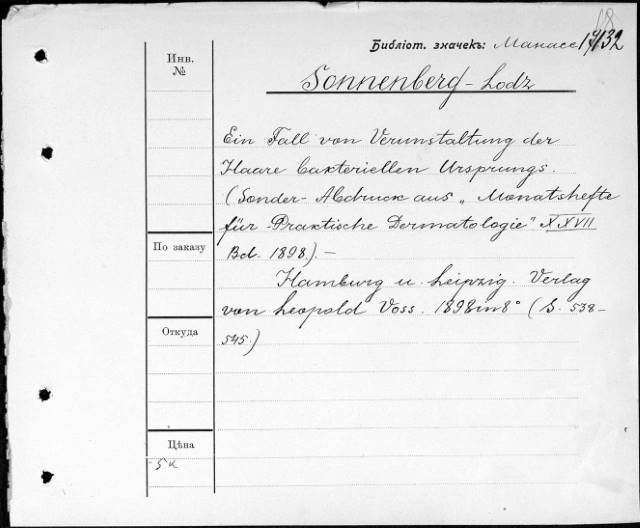 18
Библіот. значекъ: Манасс 17/132
Инв.
№
Sonnenberg - Lodz
Ein Fall von Verunstaltung der
Haare bakteriellen Ursprungs.
(Sonder-Abdruck aus „Monatshefte
für Praktische Dermatologie" XXVII
По заказу
Bd. 1898.). –
Hamburg u. Leipzig. Verlag
von Leopold Voss. 1898 in 8° (S. 538-
Откуда
545.)
Цѣна
5 к